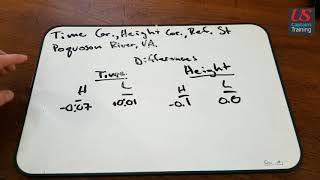 US
Captain's
Training
Time Cor., Height Cor., Ref. St
Poquoson River, VA.
Differences
Time Height
H L H L
-0:07 +0:01 -0.1 0.0